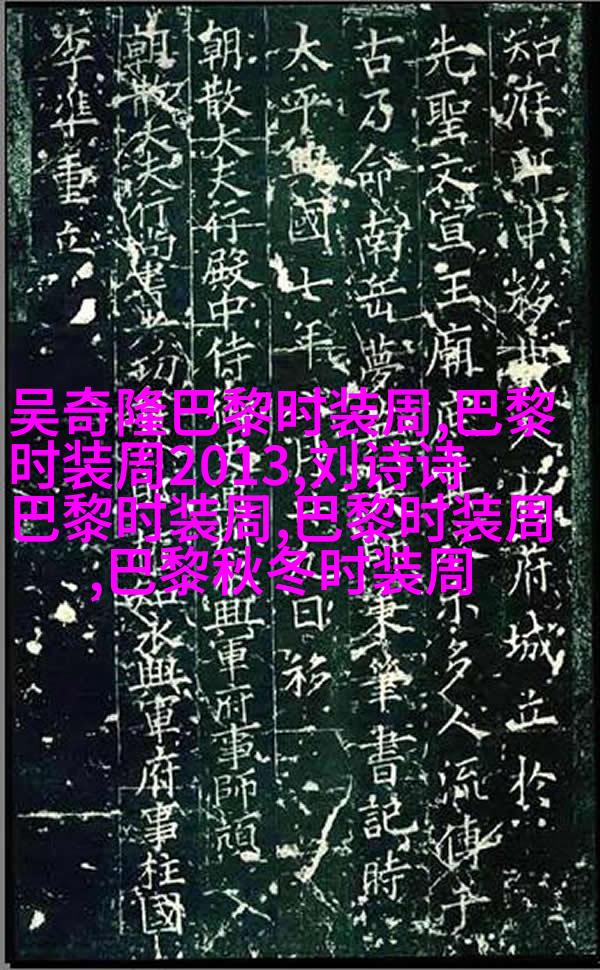 吴奇隆巴黎时装周,巴黎
时装周2013,刘诗诗
巴黎时装周,巴黎时装周
,巴黎秋冬时装周
知府移府城立於
先聖文宣王廟多人流傳于
古乃命南岳夢秉筆書記時
太平興國七年日移
朝散大夫行殿中侍興軍府事師頏
朝散大夫行尚書永興軍府事柱國
李準重立